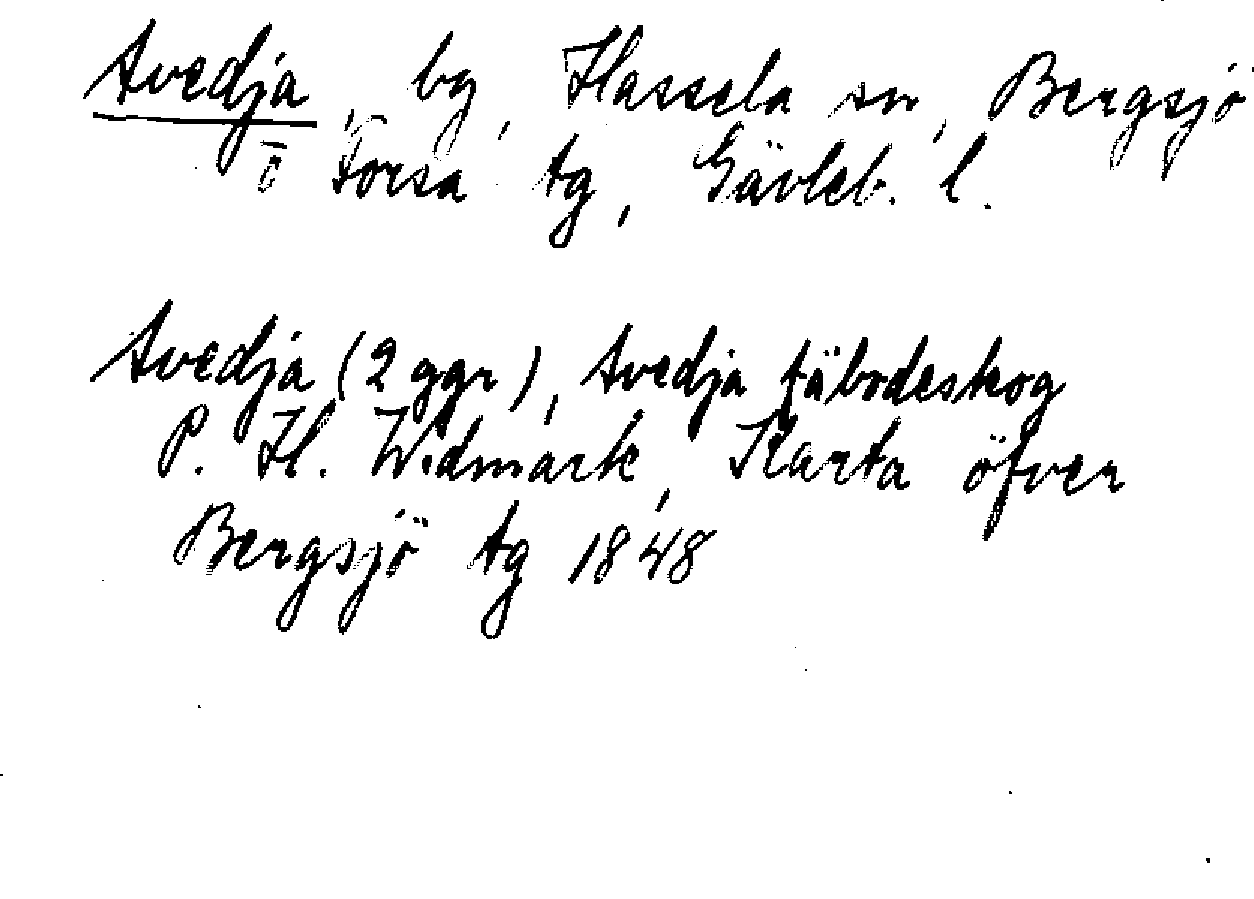 Avedja, by, Hassela sn, Bergsjö
o Forsa tg, Gävleb. l.
Avedja (2 ggr), Avedja fäbodeskog
P. H. Widmark, Karta öfver
Bergsjö tg 1848